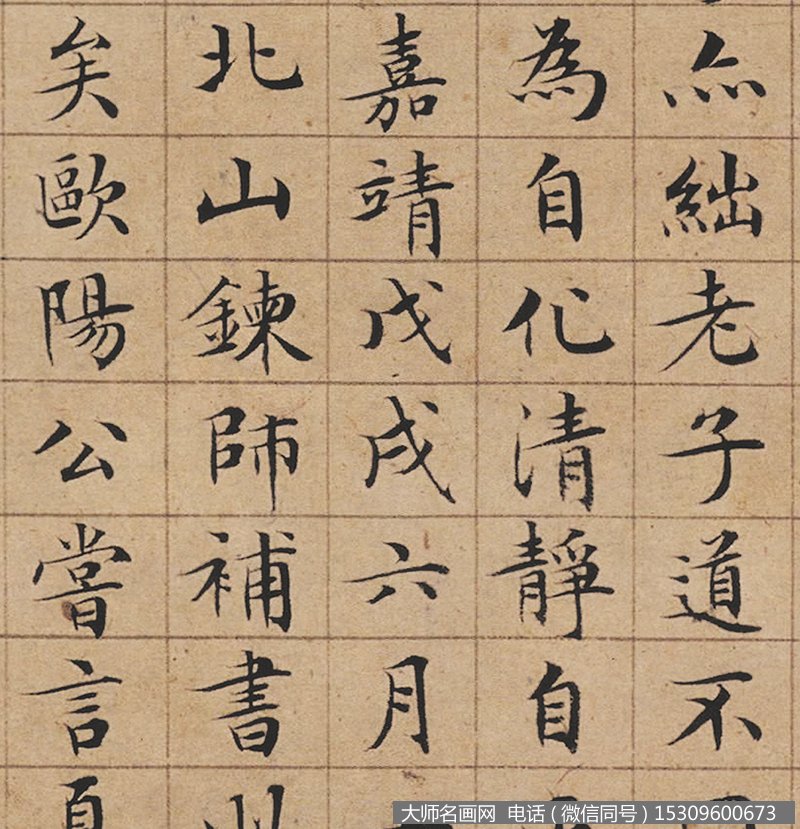 亦絀老子道不
為自化清靜自
嘉靖戊戌六月
北山鍊師補書
矣歐陽公嘗言
大师名画网 电话（微信同号）15309600673